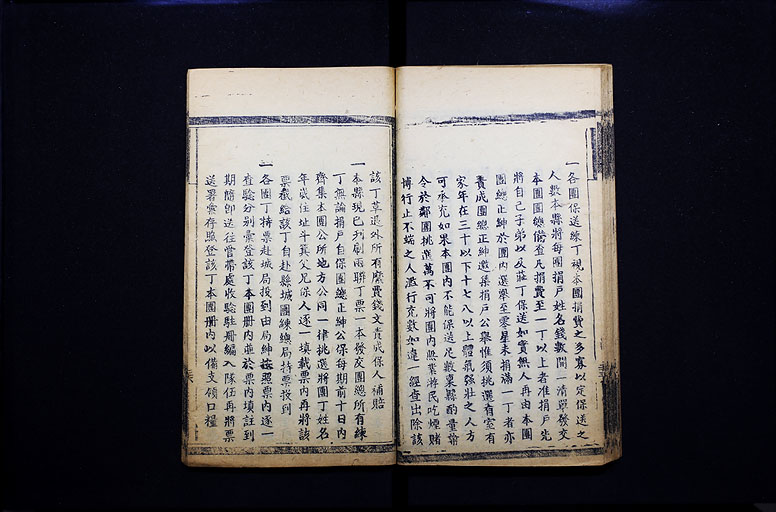 一各團保送練丁視本團捐費之多寡以定保送之
人數本縣將每團捐戶姓名錢數開一清單發交
本團團總備查凡捐費至一丁以上者准捐戶先
將自己子弟以及莊丁保送如實無人再由本團
團總正紳於團內選舉至零星未捐滿一丁者亦
責成團總正紳邀集捐戶公舉惟須挑選有室有
家年在三十以下十七八以上體氣強壯之人方
可承充如果本團內不能保送足數稟縣酌量諭
令於鄰團挑選萬不可將團內無業游民吃煙賭
博行止不端之人濫行充數如違一經查出除該
該丁草退外所有糜費錢文責成保人補賠
一本縣現已刊刷兩聯丁票一本發交團總所有練
丁無論捐戶自保團總正紳公保每期前十日內
齊集本團公所地方公同一律挑選將團丁姓名
年歲住址斗箕父兄保人逐一填載票內再將該
票截給該丁自赴縣城團練總局持票投到
一各團丁持票赴城局投到由局紳 照票內逐一
查驗分別彙登該丁本團冊內並於票內填註到
期簡卽送往營帶處收驗駐冊編入隊伍再將票
送署彙存縣登該丁本團冊內以備支領口糧